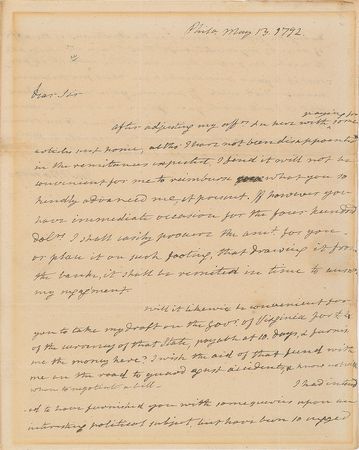 Phila May 13. 1792.
Dear Sir
paying for
after adjusting my affrs. &c here with some
articles sent home, altho I have not been disappointed
in the remittances expected, I find it will not be
convenient for me to reimburse what you so
kindly advanced me, at present. If however you
have immediate occasion for the four hundred
dolrs. I shall easily procure the amt. for you
or place it on such footing, that drawing it from
the bank, it shall be remitted in time to answer
my engagment.
Will it likewise be convenient for
you to take my draft on the Govr. of Virginia for
of the currency of that State, payable at 10. days, & furnish
me the money here? I wish the aid of that fund with
me on the road to guard agnst accidents, & know not
when to negotiate a bill.
I had intend
-ed to have furnished you with some queries upon an
interesting political subject, but have been so